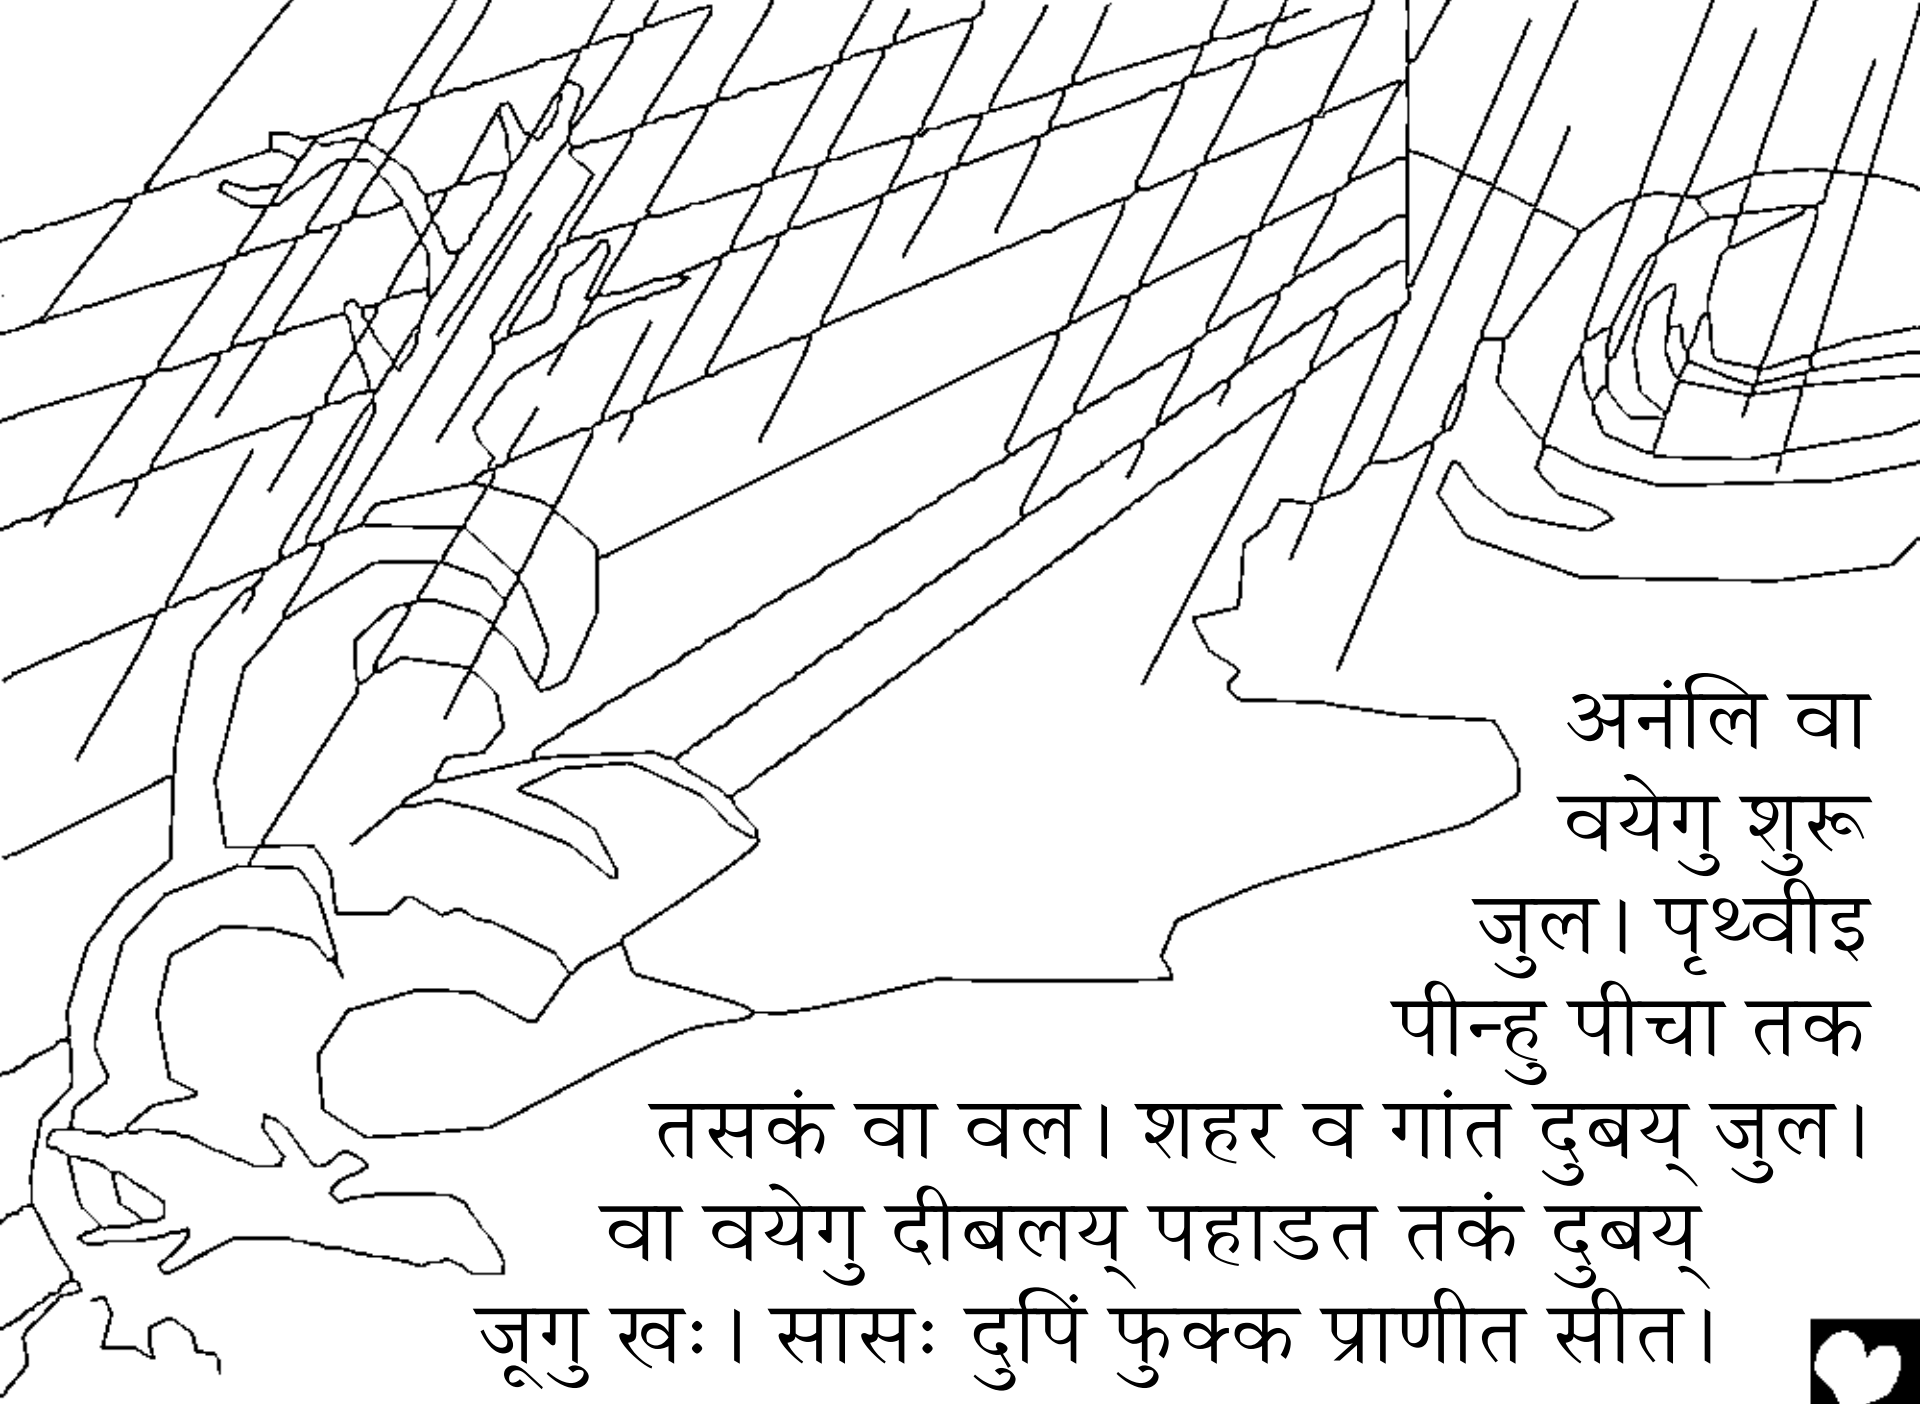 अनंलि वा
वयेगु शुरू
जुल। पृथ्वीइ
पीन्हु पीचा तक
तसकं वा वल। शहर व गांत दुबय् जुल।
वा वयेगु दीबलय् पहाडत तकं दुबय्
जूगु खः। सासः दुपिं फुक्क प्राणीत सीत।